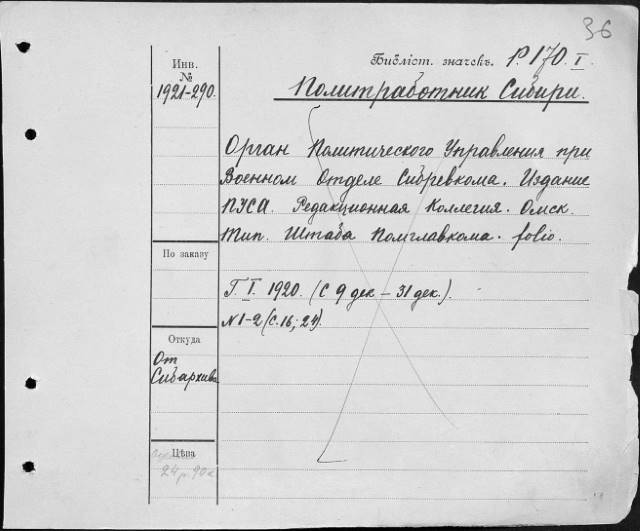 36
Инв.
№
1921-290.
Библіот. значекъ. Р.170.I.
Политработник Сибири.
Орган Политического Управления при
Военном Отделе Сибревкома. Издание
ПУСА. Редакционная Коллегия. Омск.
Тип. Штаба Помглавкома. folio.
По заказу
Г.I. 1920. (С 9 дек – 31 дек.).
N 1-2 (с. 16; 24).
Откуда
От
Сибархива
Цѣна
24 р. 90к